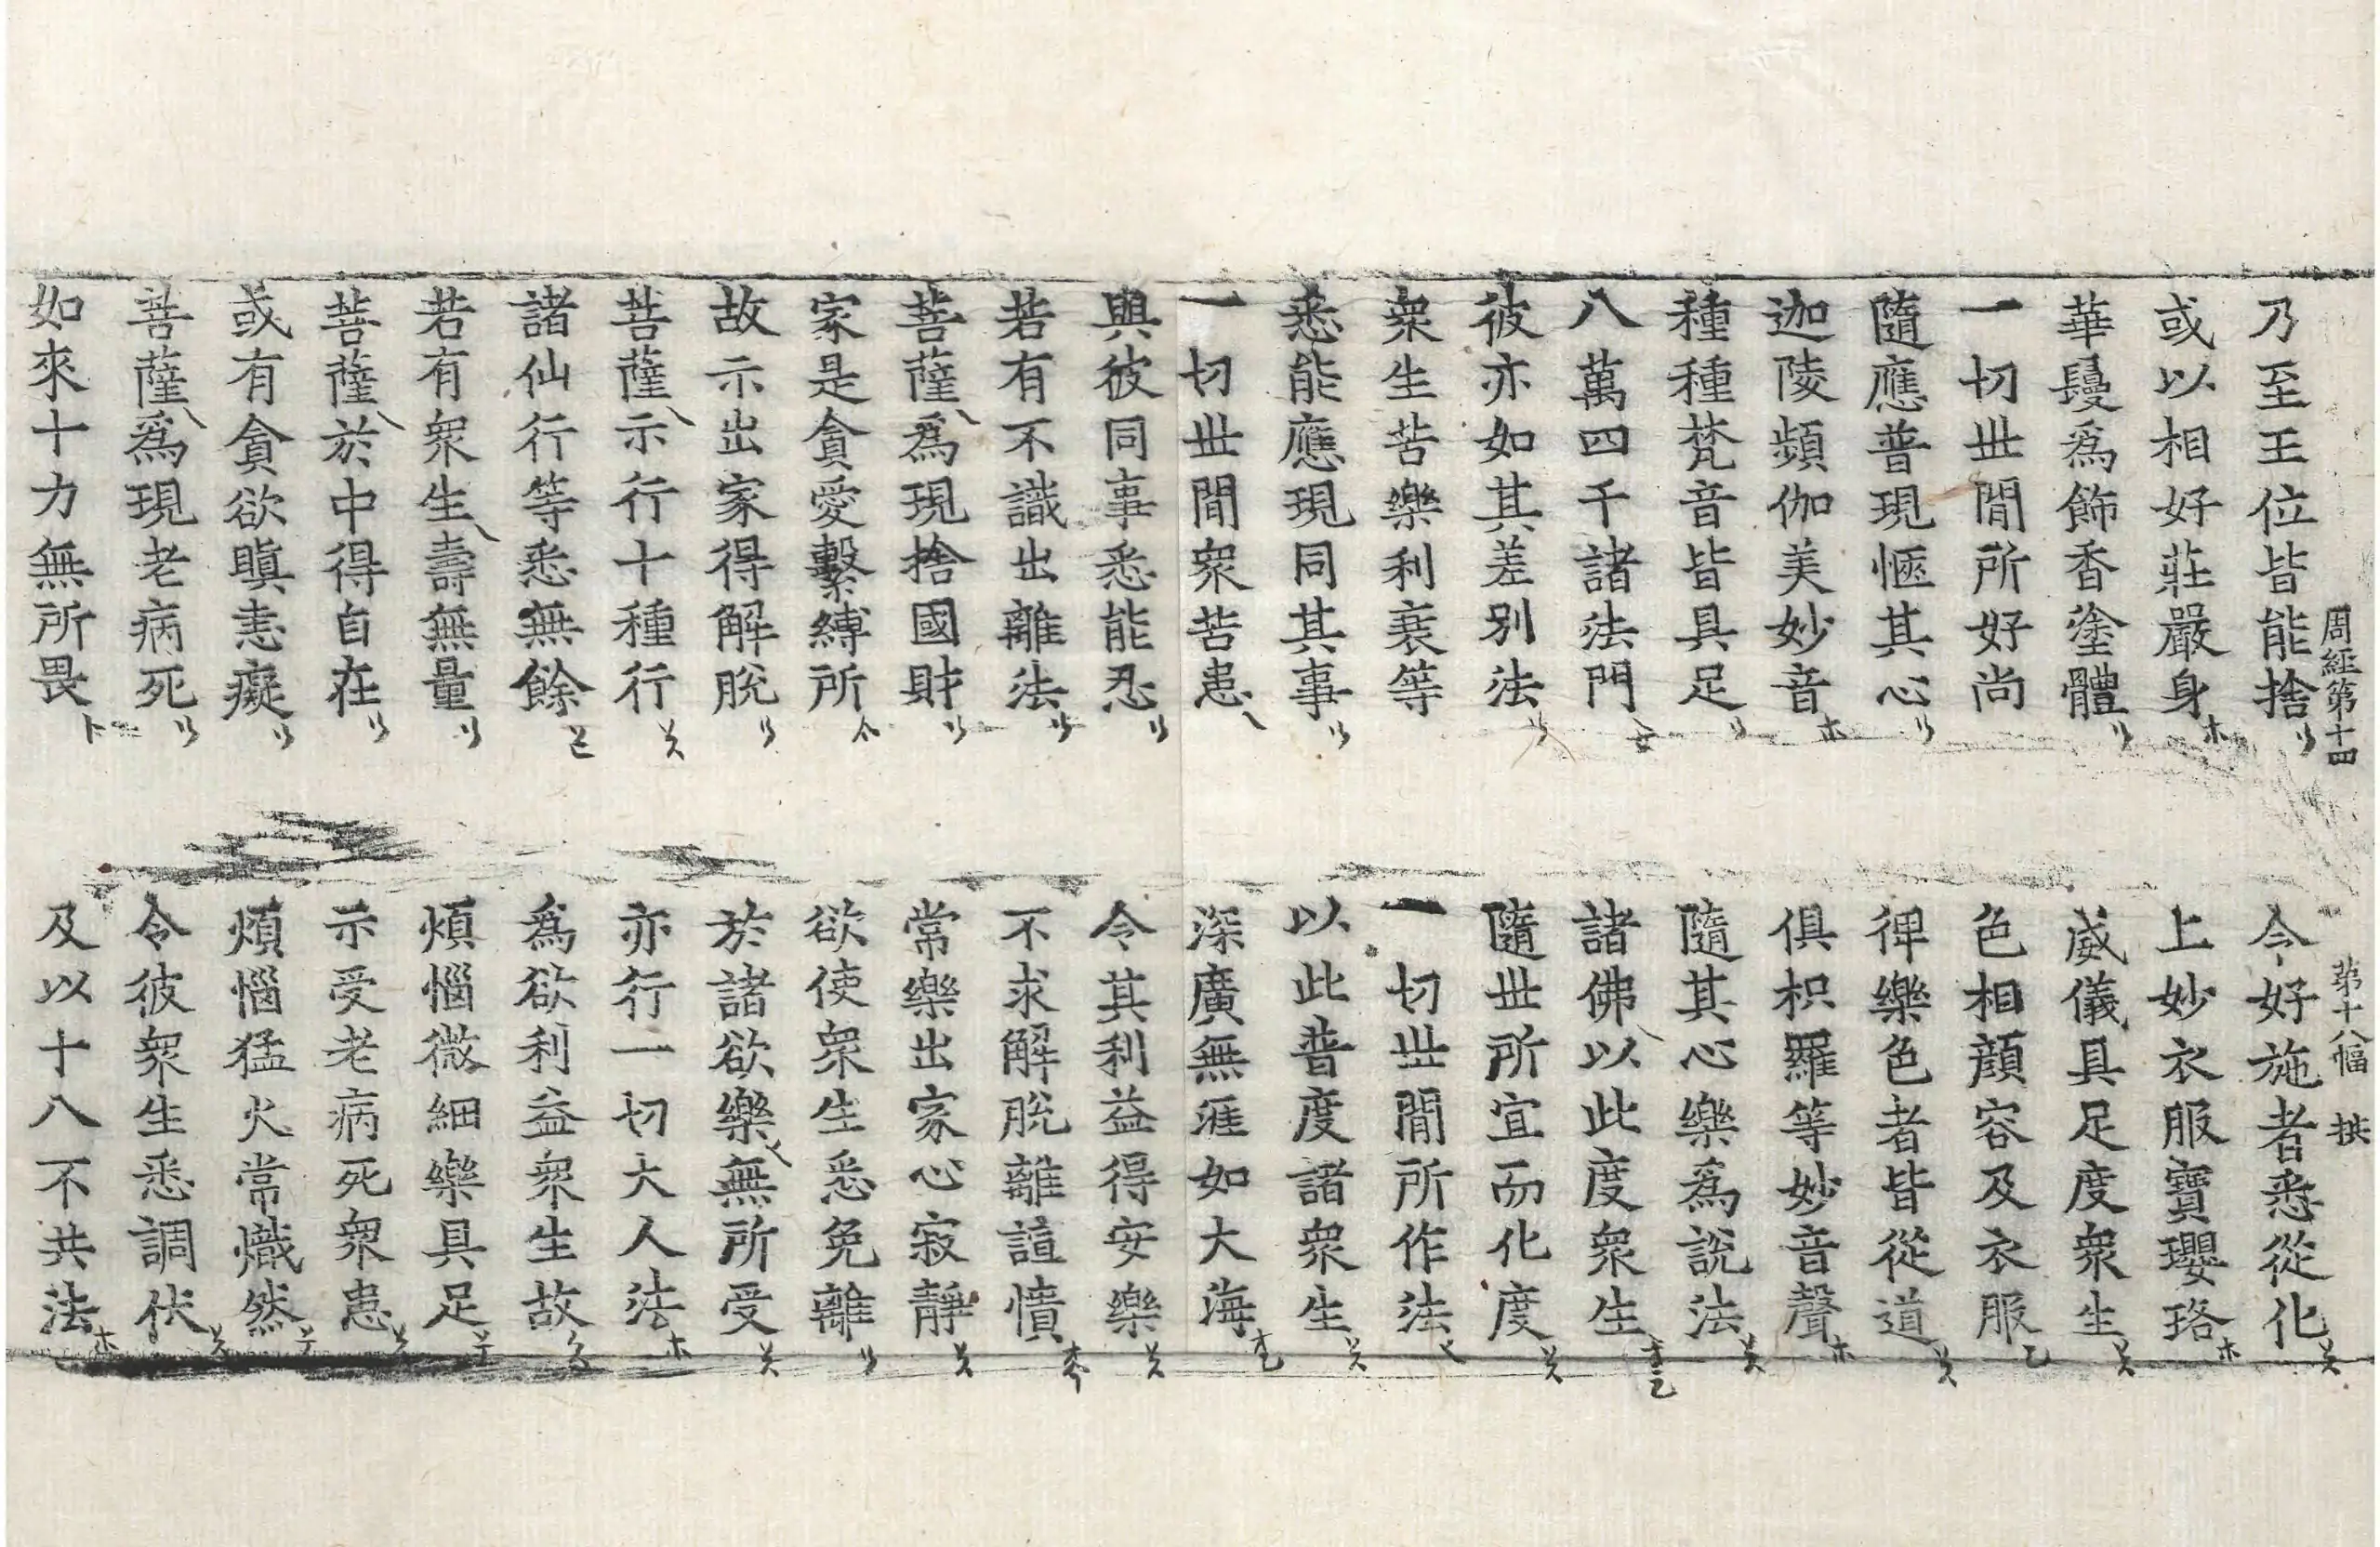 周經第十四 第十八幅 拱
乃至王位皆能捨 令好施者悉從化
或以相好莊嚴身 上妙衣服寶瓔珞
華鬘爲飾香塗體 威儀具足度衆生
一切世間所好尚 色相顔容及衣服
隨應普現愜其心 俾樂色者皆從道
迦陵頻伽美妙音 俱枳羅等妙音聲
種種梵音皆具足 隨其心樂爲說法
八萬四千諸法門 諸佛以此度衆生
彼亦如其差別法 隨世所宜而化度
衆生苦樂利衰等 一切世間所作法
悉能應現同其事 以此普度諸衆生
一切世間衆苦患 深廣無涯如大海
與彼同事悉能忍 令其利益得安樂
若有不識出離法 不求解脫離諠憒
菩薩爲現捨國財 常樂出家心寂靜
家是貪愛繫縛所 欲使衆生悉免離
故示出家得解脫 於諸欲樂無所受
菩薩示行十種行 亦行一切大人法
諸仙行等悉無餘 爲欲利益衆生故
若有衆生壽無量 煩惱微細樂具足
菩薩於中得自在 示受老病死衆患
或有貪欲瞋恚癡 煩惱猛火常熾然
菩薩爲現老病死 令彼衆生悉調伏
如來十力無所畏 及以十八不共法